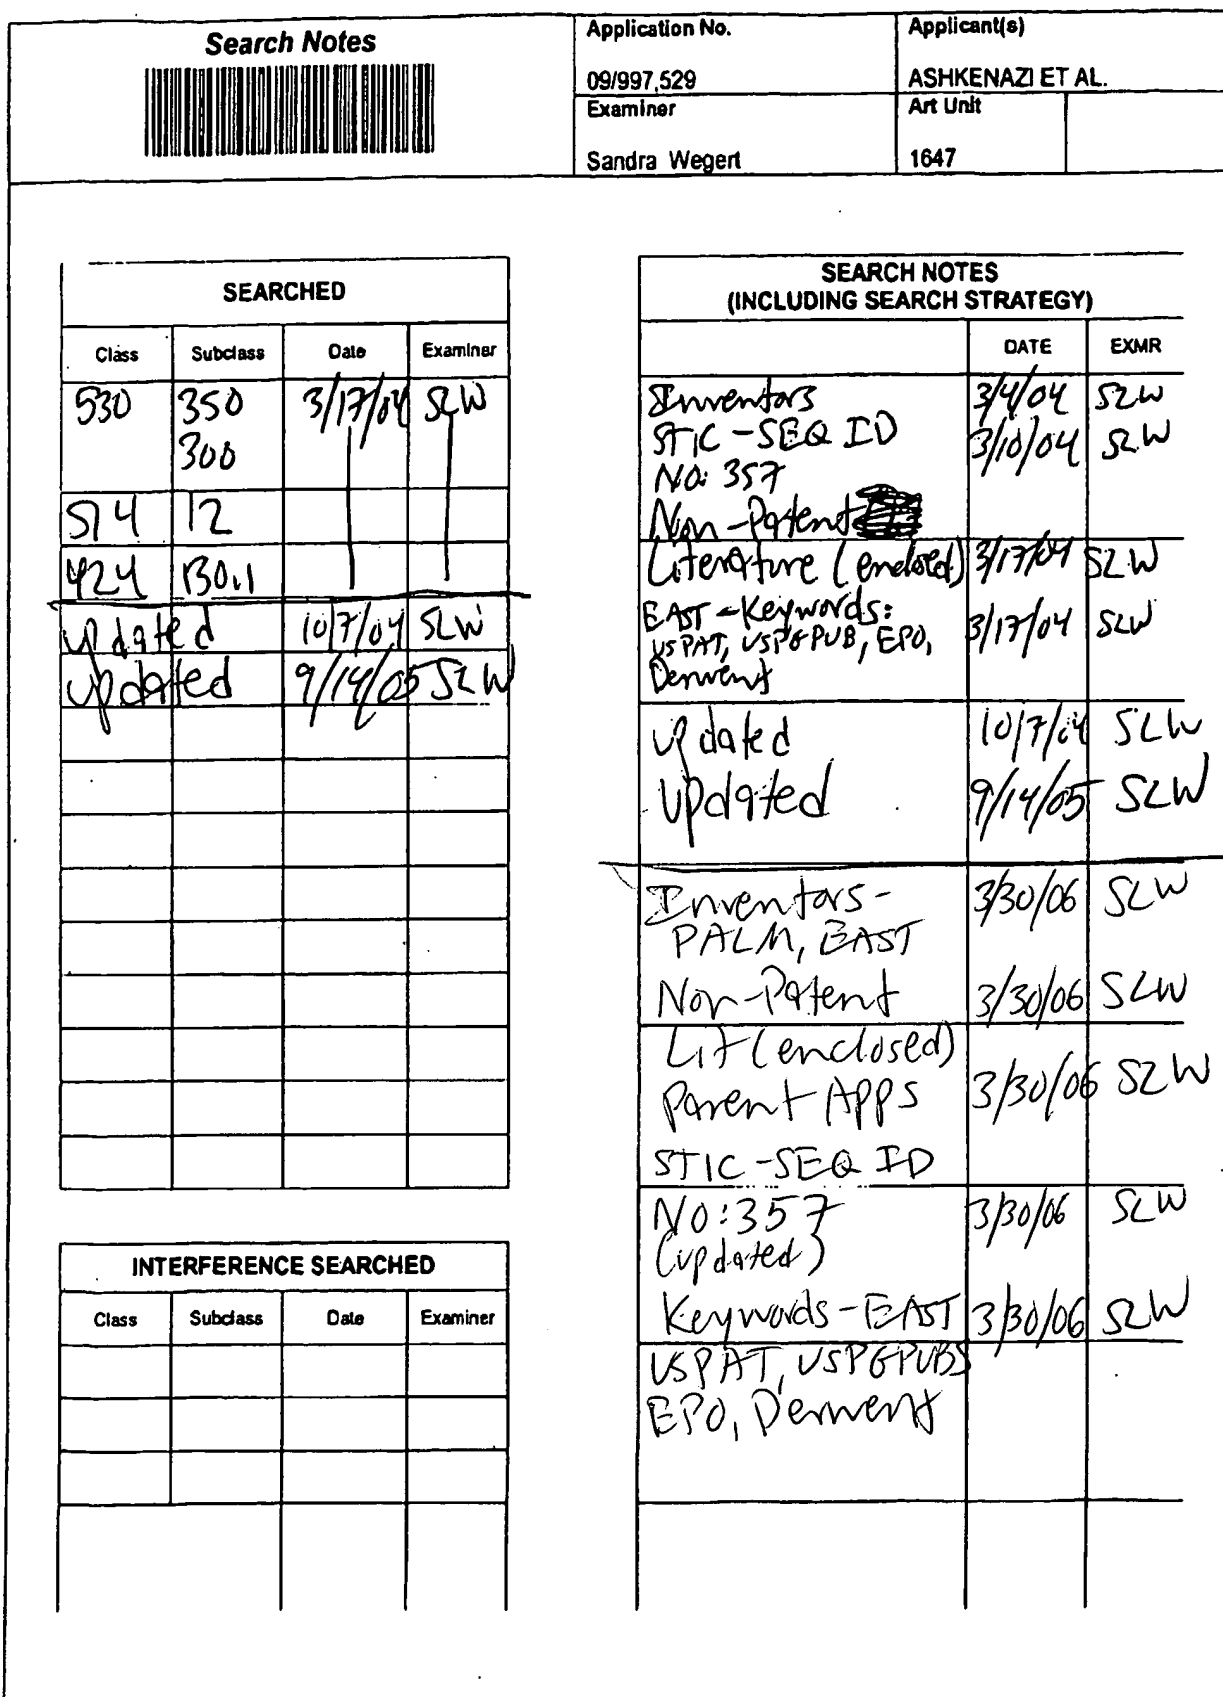 Search Notes
Application No.
09/997,529
Applicant(s)
ASHKENAZI ET AL.
Examiner
Sandra Wegert
Art Unit
1647
SEARCHED
Class Subclass Date Examiner
530 350 3/17/04 SLW
300
514 12
424 130.1
updated 10/7/04 SLW
updated 9/14/05 SLW
INTERFERENCE SEARCHED
Class Subclass Date Examiner
SEARCH NOTES
(INCLUDING SEARCH STRATEGY)
DATE EXMR
Inventors 3/4/04 SLW
STIC-SEQ ID 3/10/04 SLW
NO: 357
Non-Patent
Literature (enclosed) 3/17/04 SLW
EAST-Keywords: 3/17/04 SLW
USPAT, USPGPUB, EPO,
Derwent
updated 10/7/04 SLW
updated 9/14/05 SLW
Inventors- 3/30/06 SLW
PALM, EAST
Non-Patent 3/30/06 SLW
Lit (enclosed)
Parent Apps 3/30/06 SLW
STIC-SEQ ID
NO:357 3/30/06 SLW
(updated)
Keywords-EAST 3/30/06 SLW
USPAT, USPGPUBS
EPO, Derwent